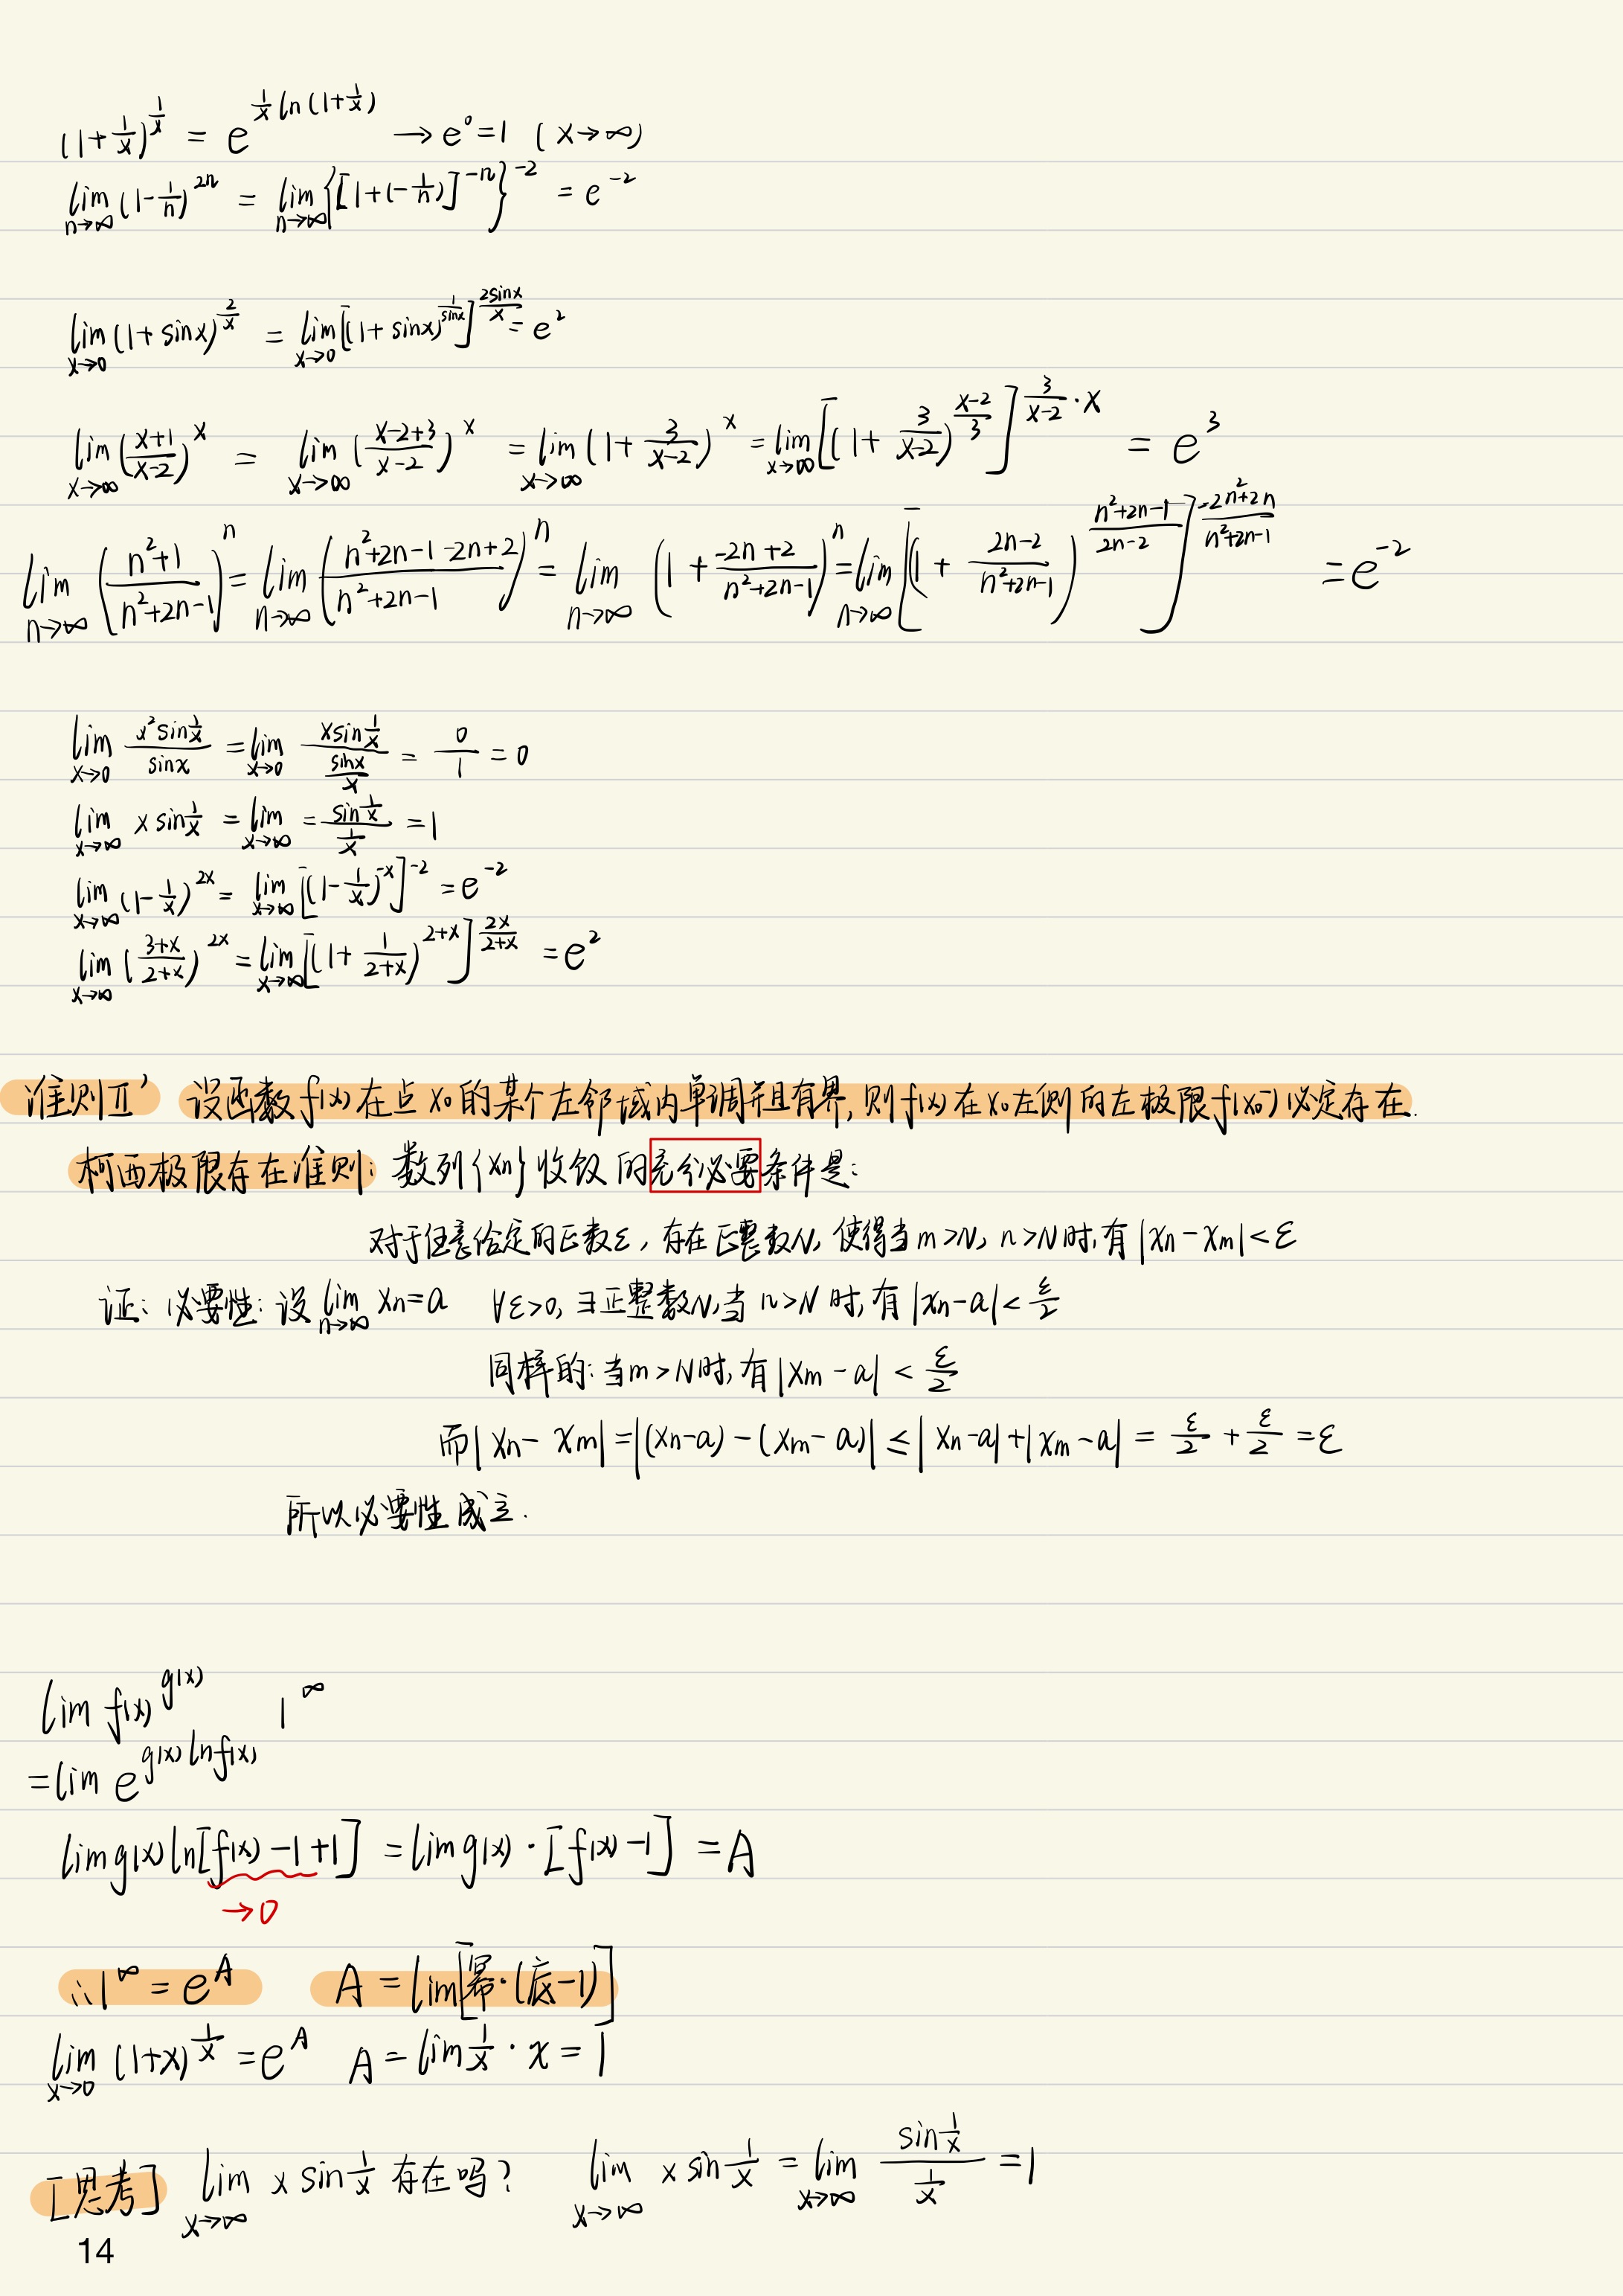 (1+1/x)^(1/x) = e^(1/x ln(1+1/x)) → e^0=1 (x→∞)
lim_(n→∞) (1-1/n)^(2n) = lim_(n→∞) {[1+(-1/n)]^(-n)}^(-2) = e^(-2)
lim_(x→0) (1+sinx)^(2/x) = lim_(x→0) [(1+sinx)^(1/sinx)]^(2sinx/x) = e^2
lim_(x→∞) ((x+1)/(x-2))^x = lim_(x→∞) ((x-2+3)/(x-2))^x = lim_(x→∞) (1+3/(x-2))^x = lim_(x→∞) [(1+3/(x-2))^((x-2)/3)]^(3/(x-2)·x) = e^3
lim_(n→∞) ((n²+1)/(n²+2n-1))^n = lim_(n→∞) ((n²+2n-1-2n+2)/(n²+2n-1))^n = lim_(n→∞) (1+(-2n+2)/(n²+2n-1))^n = lim_(n→∞) [(1+(2n-2)/(n²+2n-1))^((n²+2n-1)/(2n-2))]^((-2n²+2n)/(n²+2n-1)) = e^(-2)
lim_(x→0) (x² sin(1/x))/(sinx) = lim_(x→0) (x sin(1/x))/(sinx/x) = 0/1 = 0
lim_(x→∞) x sin(1/x) = lim_(x→∞) = (sin(1/x))/(1/x) = 1
lim_(x→∞) (1-1/x)^(2x) = lim_(x→∞) [(1-1/x)^(-x)]^(-2) = e^(-2)
lim_(x→∞) ((3+x)/(2+x))^(2x) = lim_(x→∞) [(1+1/(2+x))^(2+x)]^(2x/(2+x)) = e^2
准则Ⅱ' 设函数f(x)在点x₀的某个左邻域内单调并且有界,则f(x)在x₀左侧的左极限f(x₀⁻)必定存在.
柯西极限存在准则: 数列{xn}收敛的充分必要条件是:
对于任意给定的正数ε, 存在正整数N, 使得当m>N, n>N时,有|xn-xm|<ε
证: 必要性: 设 lim_(n→∞) xn=a ∀ε>0, ∃正整数N,当n>N时,有|xn-a|<ε/2
同样的: 当m>N时,有|xm-a|<ε/2
而|xn-xm|=|(xn-a)-(xm-a)|≤|xn-a|+|xm-a|=ε/2+ε/2=ε
所以必要性成立.
lim f(x)^g(x) 1^∞
=lim e^(g(x)lnf(x))
lim g(x)ln[f(x)-1+1] = lim g(x)·[f(x)-1] = A
→0
∴1^∞=e^A A=lim[幂·(底-1)]
lim_(x→0) (1+x)^(1/x) = e^A A=lim 1/x · x = 1
[思考] lim_(x→∞) x sin(1/x) 存在吗? lim_(x→∞) x sin(1/x) = lim_(x→∞) (sin(1/x))/(1/x) = 1
14